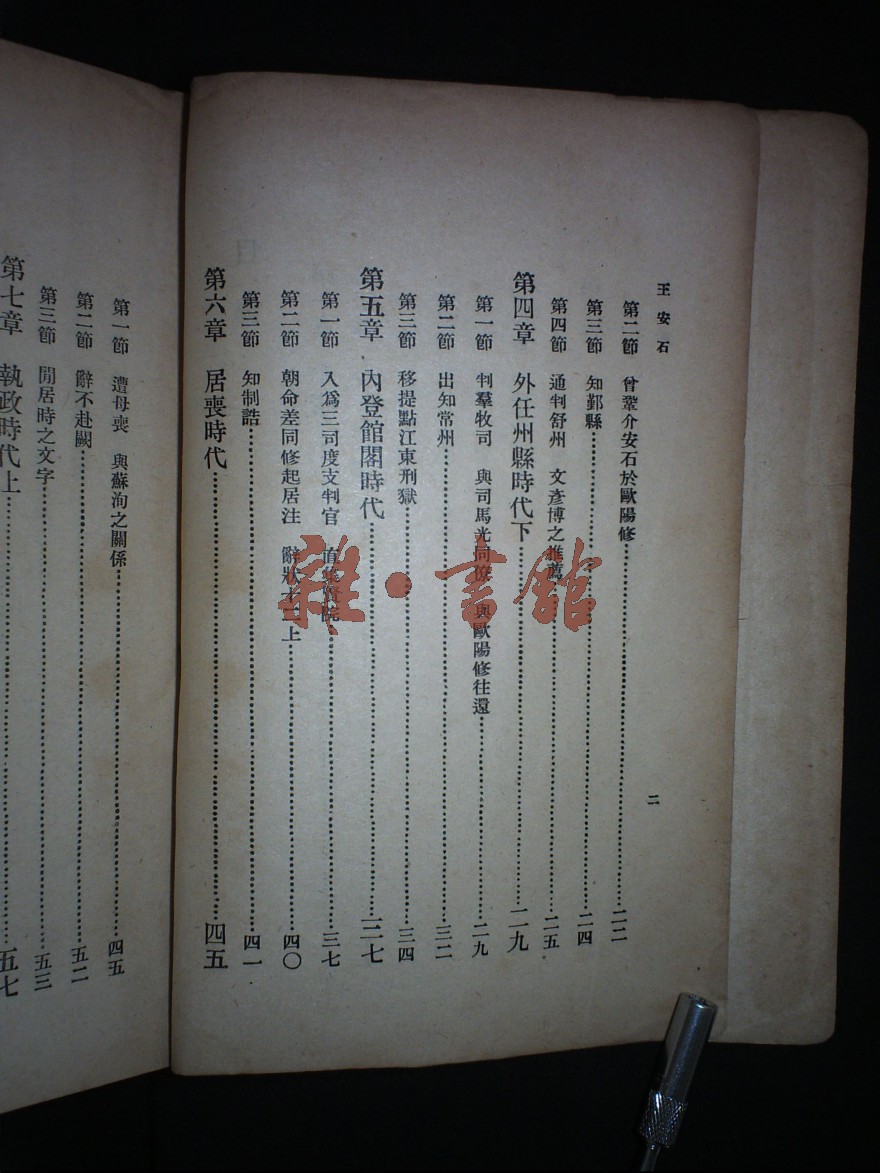 王安石
二
第二節 曾鞏介安石於歐陽修……二二
第三節 知鄞縣……二四
第四節 通判舒州 文彥博之推薦……二五
第四章 外任州縣時代下……二九
第一節 判羣牧司 與司馬光同僚 與歐陽修往還……二九
第二節 出知常州……三二
第三節 移提點江東刑獄……三四
第五章 內登館閣時代……三七
第一節 入爲三司度支判官 直集賢院……三七
第二節 朝命差同修起居注 辭狀十二上……四〇
第三節 知制誥……四一
第六章 居喪時代……四五
第一節 遭母喪 與蘇洵之關係……四五
第二節 辭不赴闕……五二
第三節 閒居時之文字……五三
第七章 執政時代上……五七
雜·書館